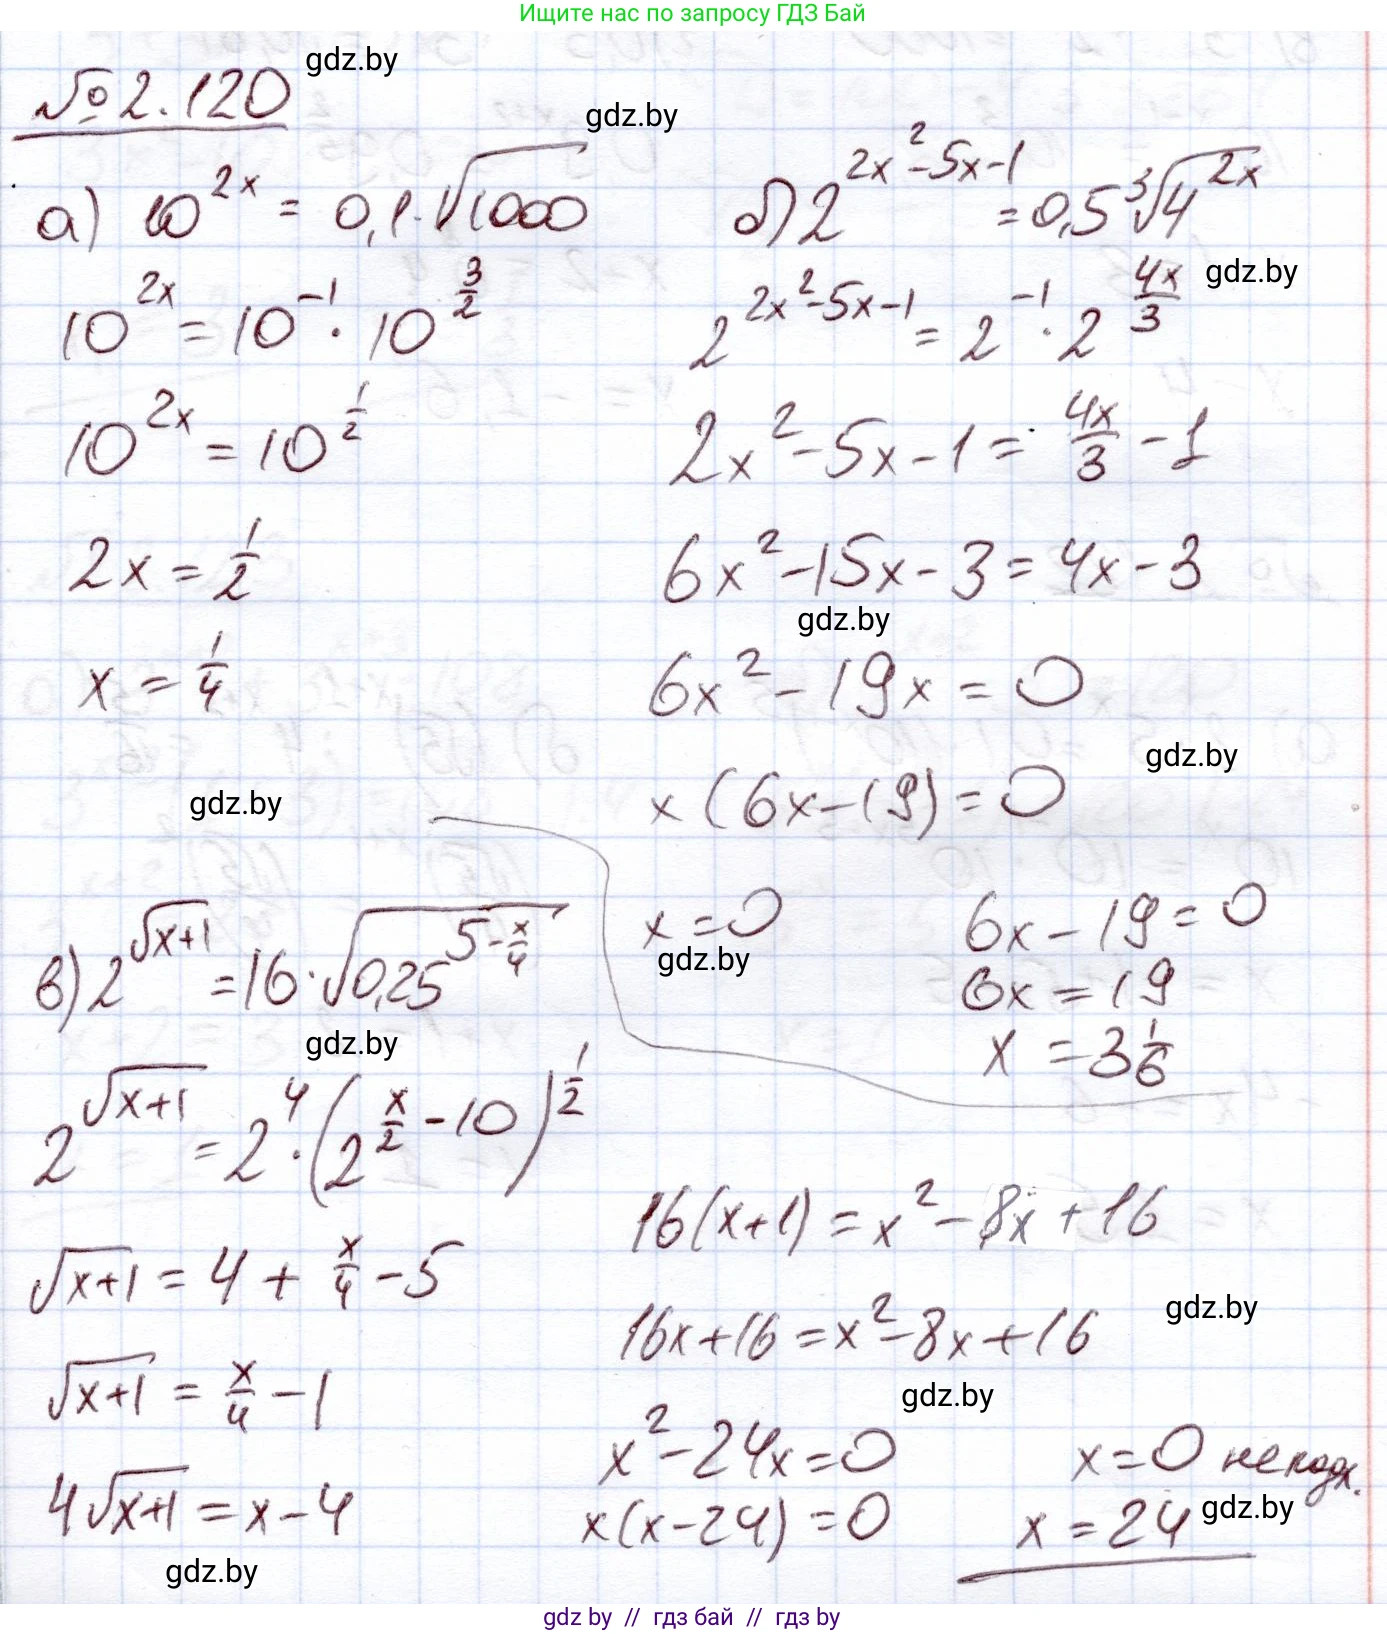 Ищите нас по запросу ГДЗ Бай
№ 2.120
gdz.by
gdz.by
а) 10^{2x} = 0,1·√1000
10^{2x} = 10^{-1} · 10^{3/2}
10^{2x} = 10^{1/2}
2x = 1/2
x = 1/4
gdz.by
б) 2^{2x²-5x-1} = 0,5 ∛4^{2x}
gdz.by
2^{2x²-5x-1} = 2^{-1} · 2^{4x/3}
2x² - 5x - 1 = 4x/3 - 1
6x² - 15x - 3 = 4x - 3
gdz.by
6x² - 19x = 0
gdz.by
x(6x - 19) = 0
x = 0
gdz.by
6x - 19 = 0
6x = 19
x = 3 1/6
в) 2^{√(x+1)} = 16·√(0,25^{5-x/4})
gdz.by
2^{√(x+1)} = 2⁴·(2^{x/2 - 10})^{1/2}
√(x+1) = 4 + x/4 - 5
√(x+1) = x/4 - 1
4√(x+1) = x - 4
gdz.by
16(x+1) = x² - 8x + 16
gdz.by
16x + 16 = x² - 8x + 16
gdz.by
x² - 24x = 0
x(x - 24) = 0
x = 0 не подх.
x = 24
gdz.by
gdz by // гдз бай // гдз by